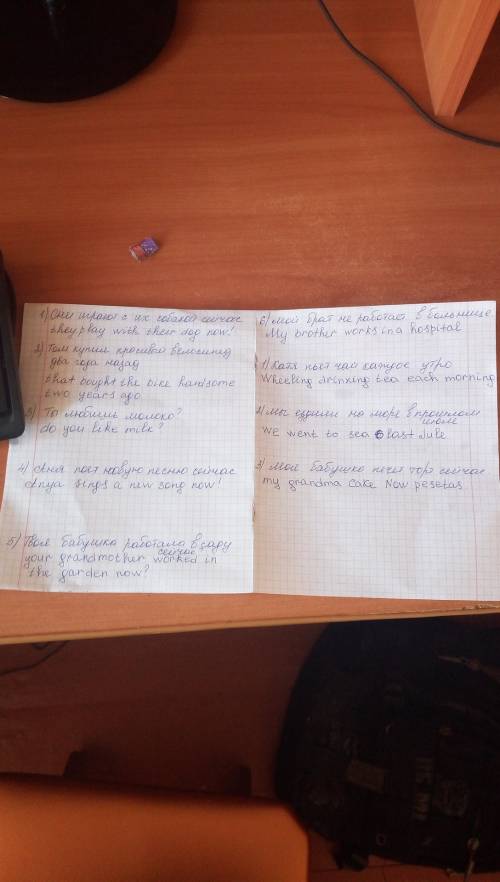 1) Они играют с их собакой сейчас
they play with their dog now!
2) Том купил красивый велосипед
два года назад
that bought the bike handsome
two years ago
3) Ты любишь молоко?
do you like milk?
4) Аня поёт новую песню сейчас
Anya sings a new song now!
5) Твоя бабушка работала в саду
сейчас
your grandmother worked in
the garden now?
6) Мой брат не работает в больнице
My brother works in a hospital
1) Катя пьёт чай каждое утро
Wheeling drinking tea each morning
2) Мы ездили на море в прошлом
июле
we went to sea last Jule
3) Моя бабушка печёт торт сейчас
my grandma cake Now pesetas